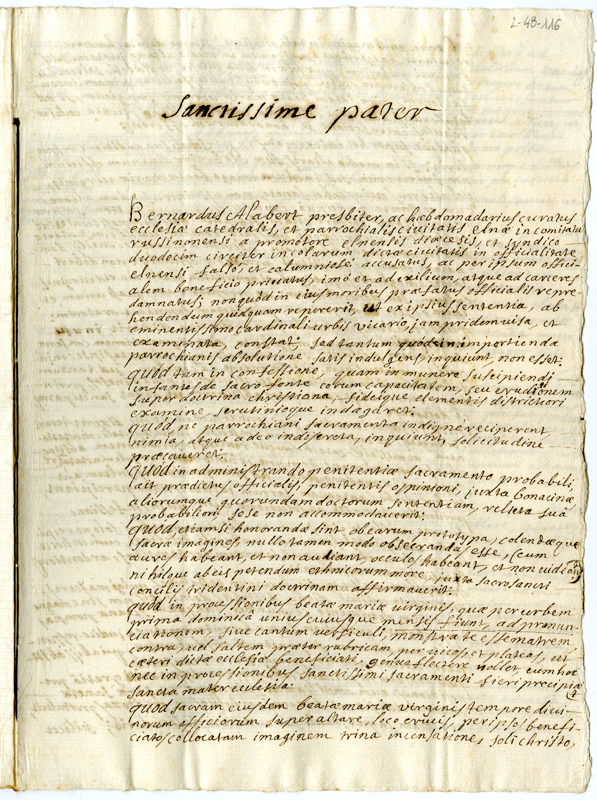 2-48-116
Sanctissime pater
Bernardus Alabert presbiter, ac hæbdomadarius curatus
ecclesiæ catedralis, et parrochialis civitatis elnæ in comitatu
russinonensi a promotore elnensis diœcesis, et syndico
duodecim circiter incolarum dictæ civitatis in officialitate
elnensi falsò, et calumniosè accusatus, ac per ipsum offici-
alem beneficio privatus, imò et ad exilium, atque ad carceres
damnatus; non quòd in eius moribus præfatus officialis repre-
hendendum quidquam repererit, ut ex ipsius sententia, ab
eminentissimo cardinali urbis vicario, jam pridem visa, et
examinata, constat: sed tantum quòd in impertienda
parrochianis absolutione satis indulgens, inquiunt non esset:
quòd tam in confessione, quam in munere suscipiendi
infantes de sacro fonte eorum capacitatem, seu erudionem
super doctrina christiana, fideique elementis districtiori
examine, scrutinioque indageret:
quòd ne parrochiani sacramenta indignè reciperent
nimia, atque adeo indiscreta, inquiunt, solicitudine
præcaveret:
quòd in administrando penitentiæ sacramento probabili,
ait prædictus officialis, penitentis oppinioni, juxta bonacinæ
aliorumque quorundam doctorum sententiam, relicta suâ
probabiliori sese non accommodaverit:
quòd etiamsi honorandæ sint ob earum prototypa, colendæque
sacræ imagines, nullo tamen modo obsecrandas esse, (cum
aures habeant, et non audiant, occulos habeant, et non videant)
nihilque ab eis petendum ethnicorum more, juxta sacrosancti
concilij tridentini doctrinam affirmaverit:
quòd in processionibus beatæ mariæ virginis, quæ per urbem
prima dominica uniuscuiusque mensis fiunt, ad pronun-
ciationem, sive cantum versiculi, monstra te esse matrem
contra, vel saltem præter rubricam, per vicos, et plateas, ut
cæteri dictæ ecclesiæ beneficiati, genuflectere nollet cum hoc
nec in processionibus sanctissimi sacramenti fieri præcipiat
sancta mater ecclesia:
quòd sacram eiusdem beatæ mariæ virginis tempore divi-
norum officiorum super altare, loco crucis, per ipsos benefi-
ciatos collocatam imaginem trina incensatione, soli christo,